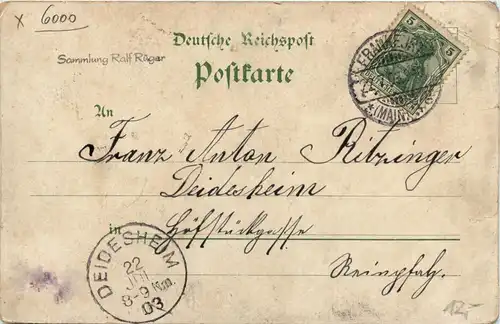 x 6000
Sammlung Ralf Rüger
Deutsche Reichspost
Postkarte
5 5
FRANKFURT
(MAIN)
An
Franz Anton Ritzinger
Deidesheim
in Hofstückgasse
Rheinpfalz.
DEIDESHEIM
22
8-9 Nm.
03
12,-